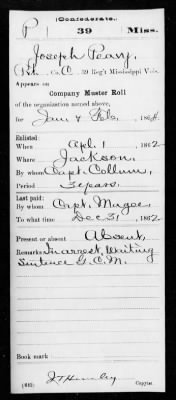 P
(Confederate.)
39 Miss.
Joseph Peary,
Pvt., Co. C, 39 Reg't Mississippi Vols.
Appears on
Company Muster Roll
of the organization named above,
for Jan & Feb, 1864.
Enlisted:
When Apl. 1, 1862
Where Jackson.
By whom Capt. Collum,
Period 3 years.
Last paid:
By whom Capt. Magee,
To what time Dec 31, 1862
Present or absent Absent,
Remarks: In arrest, writing
Sentence G.C.M.
Book mark:
(642)
Copyist.